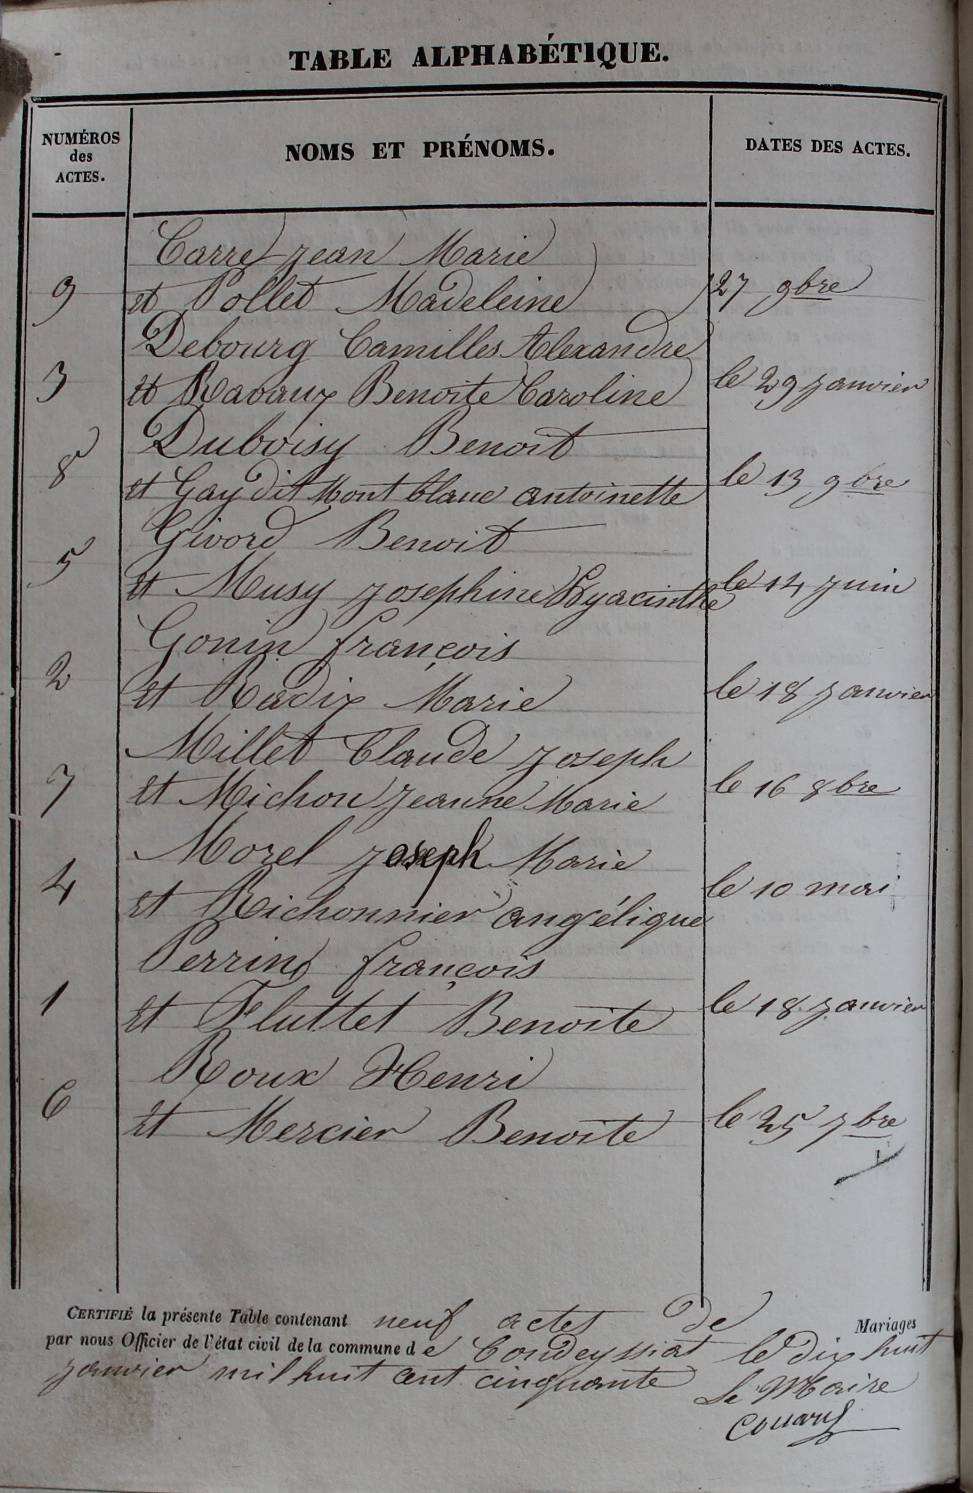 TABLE ALPHABÉTIQUE.
NUMÉROS
des
ACTES.
NOMS ET PRÉNOMS.
DATES DES ACTES.
Carre Jean Marie
9 et Pollet Madeleine 27 9bre
Debourg Camilles Alexandre
3 et Ravaux Benoite Caroline le 29 Janvier
Duboisy Benoit
8 et Gay dit Mont blanc antoinette le 13 9bre
Givord Benoit
5 et Musy Josephine Hyacinthe le 14 Juin
Gonin françois
2 et Radix Marie le 18 Janvier
Millet Claude Joseph
7 et Michon Jeanne Marie le 16 8bre
Morel Joseph Marie
4 et Richonnier angélique le 10 mai
Perrin françois
1 et Fluttet Benoite le 18 Janvier
Roux Henri
6 et Mercier Benoite le 25 7bre
CERTIFIÉ la présente Table contenant neuf actes de Mariages
par nous Officier de l'état civil de la commune de Condeyssiat le dix huit
Janvier mil huit cent cinquante Le Maire